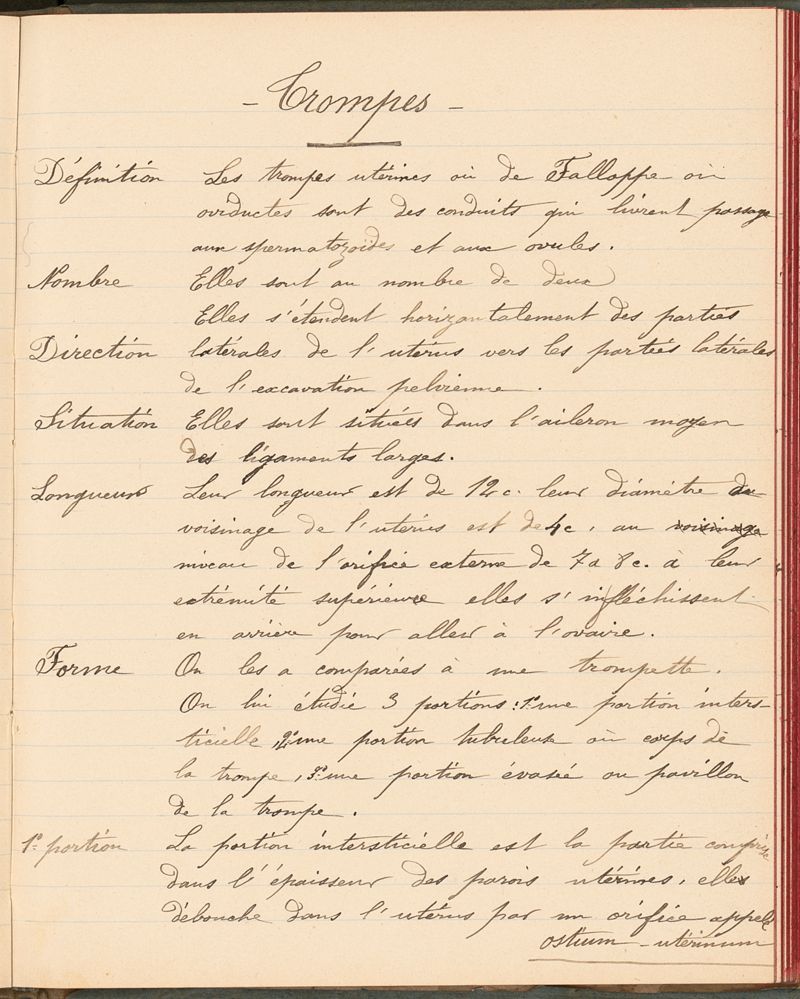 - Trompes -
Définition Les trompes utérines où de Falloppe où
oviductes sont des conduits qui livrent passage
aux spermatozoïdes et aux ovules.
Nombre Elles sont au nombre de deux
Elles s'étendent horizontalement des parties
Direction latérales de l'utérus vers les parties latérales
de l'excavation pelvienne.
Situation Elles sont situées dans l'aileron moyen
des ligaments larges.
Longueur Leur longueur est de 12 c. leur diamètre du
voisinage de l'utérus est de 4c, au voisinage
niveau de l'orifice externe de 7 à 8 c. à leur
extrémité supérieure elles s'infléchissent
en arrière pour aller à l'ovaire.
Forme On les a comparées à une trompette.
On lui étudie 3 portions: 1º une portion inters-
ticielle, 2º une portion tubuleuse où corps de
la trompe, 3º une portion évasée ou pavillon
de la trompe.
1º portion La portion intersticielle est la partie comprise
dans l'épaisseur des parois utérines, elle
débouche dans l'utérus par un orifice appelé
ostium-utérinum